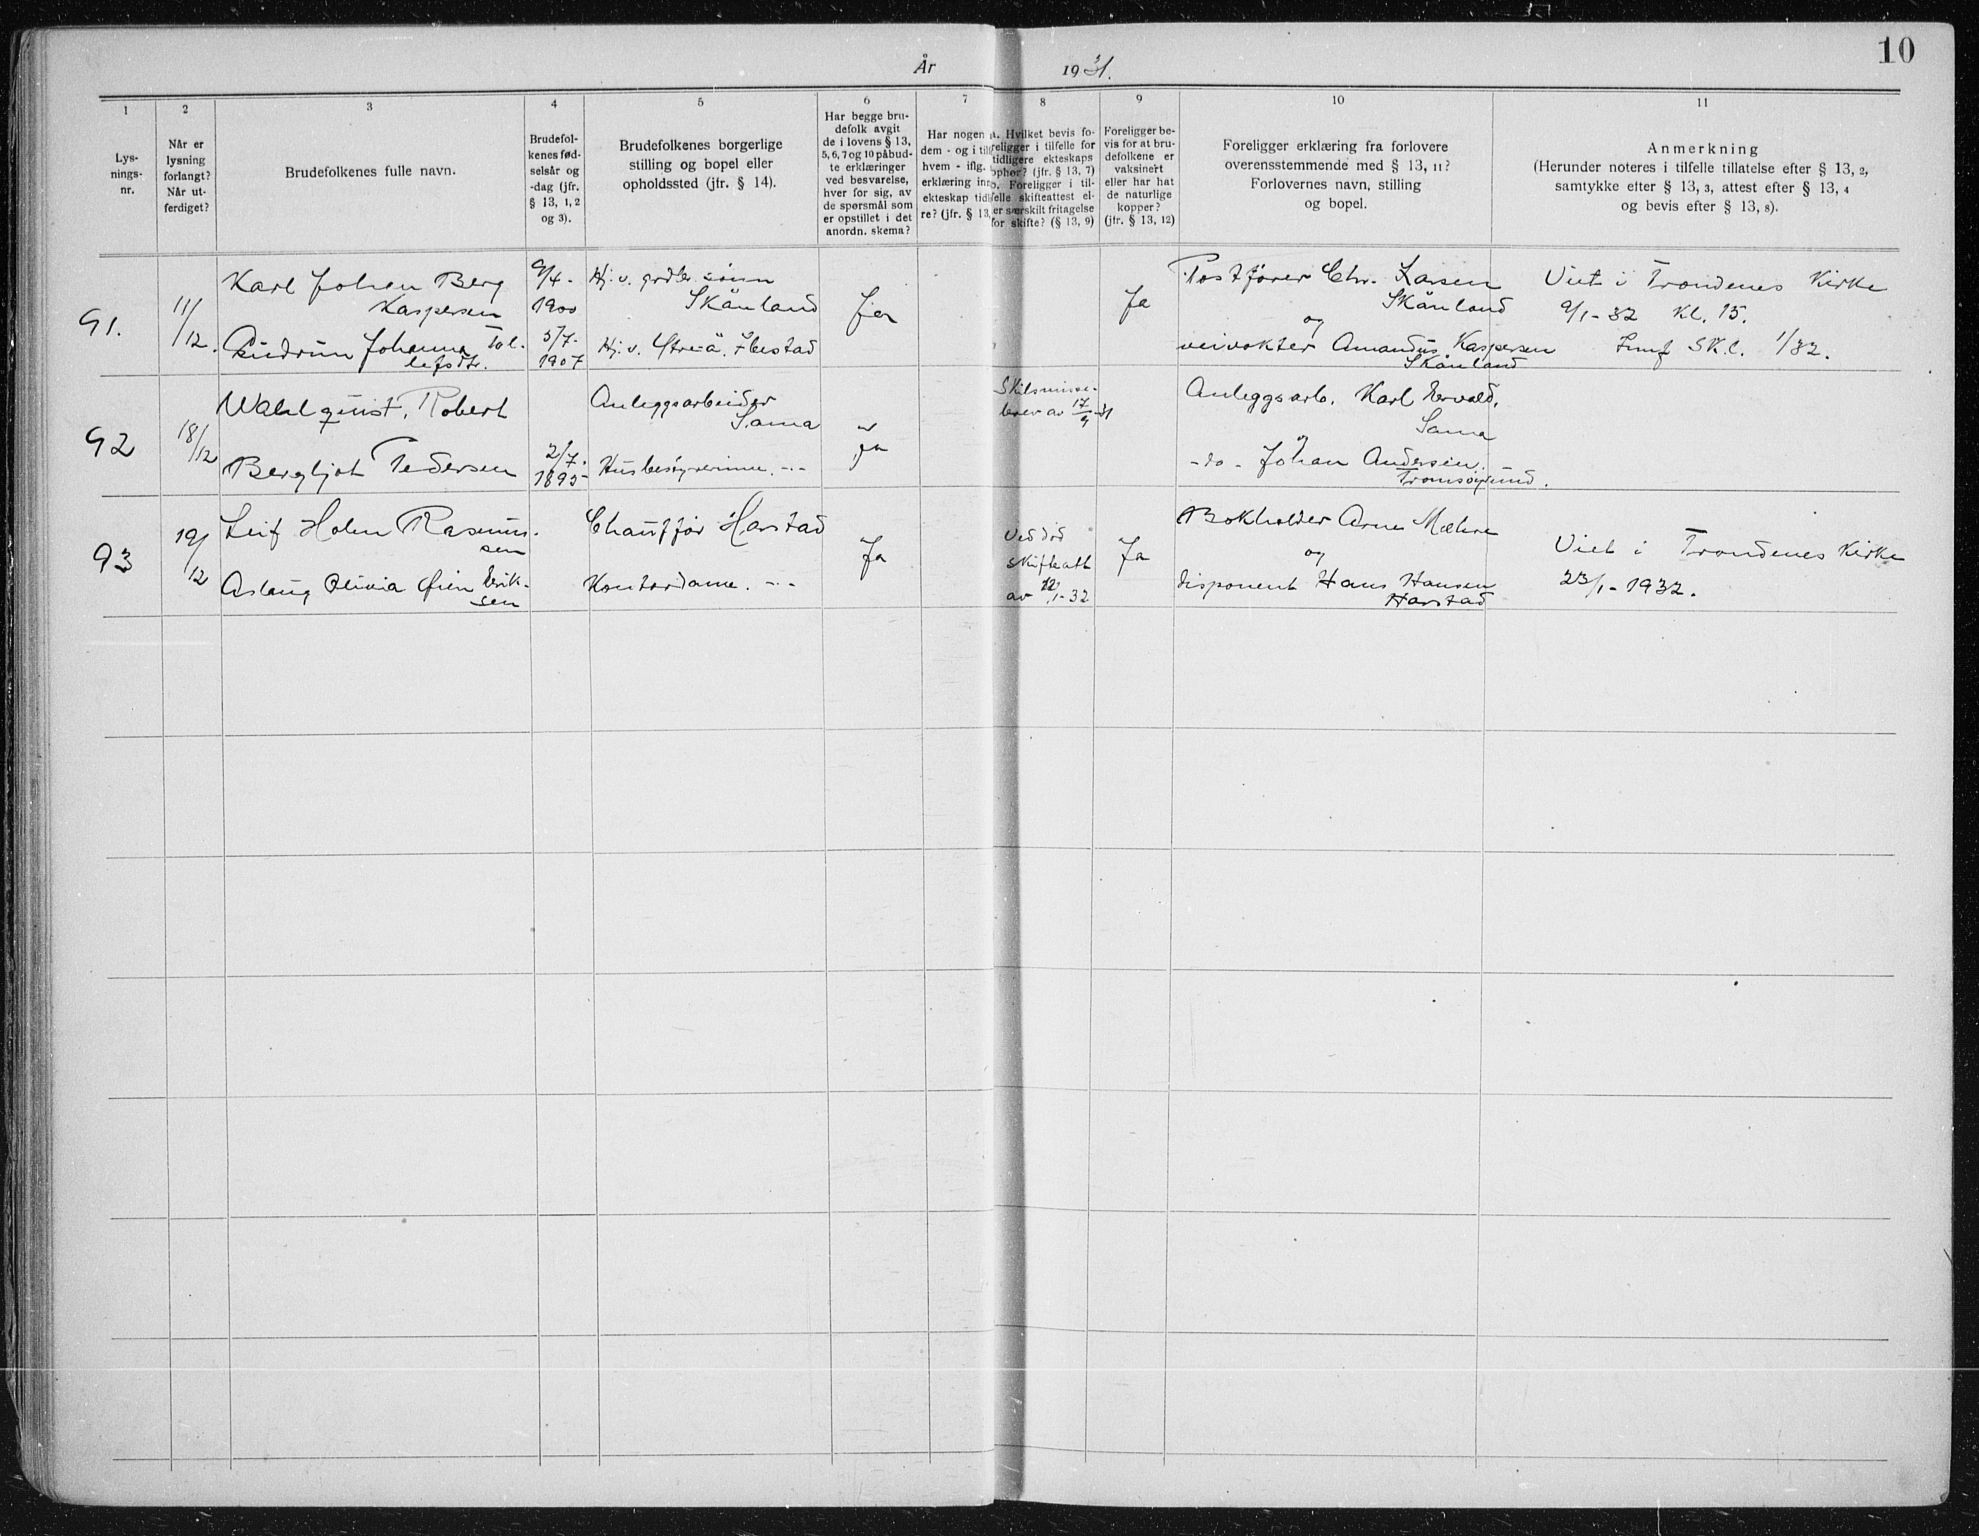 År 1931.
10
1
2
3
4
5
6
7
8
9
10
11
Lys-
nings-
nr.
Når er
lysning
forlangt?
Når ut-
ferdiget?
Brudefolkenes fulle navn.
Brudefol-
kenes fød-
selsår og
-dag (jfr.
§ 13, 1, 2
og 3).
Brudefolkenes borgerlige
stilling og bopel eller
opholdssted (jfr. § 14).
Har begge bru-
defolk avgit
de i lovens § 13,
5, 6, 7 og 10 påbud-
te erklæringer
ved besvarelse,
hver for sig, av
de spørsmål som
er opstillet i det
anordn. skema?
Har nogen a
dem - og i tilf
hvem - iflg.
erklæring inn
ekteskap tid
re? (jfr. § 13,
. Hvilket bevis fo-
religger i tilfelle for
tidligere ekteskaps
ophør? (jfr. § 13, 7)
. Foreligger i til-
felle skifteattest el-
er særskilt fritagelse
for skifte? (§ 13, 9)
Foreligger be-
vis for at bru-
defolkene er
vaksinert
eller har hat
de naturlige
kopper?
(jfr. § 13, 12)
Foreligger erklæring fra forlovere
overensstemmende med § 13, 11?
Forlovernes navn, stilling
og bopel.
Anmerkning
(Herunder noteres i tilfelle tillatelse efter § 13, 2,
samtykke efter § 13, 3, attest efter § 13, 4
og bevis efter § 13, 8).
91.
11/12.
Karl Johan Berg
Kaspersen
Gudrun Johanna Tol-
lefsdtr.
9/4-
1900
5/7-
1907
Hj. v. grdbr. sønn
Skånland
Hj. v. Ibestad
Ja
Ja
Postfører Chr. Larsen
Skånland
og
veivokter Amandus Kaspersen
Skånland
Viet i Trondenes Kirke
9/1-32 Kl. 15.
Skl. 1/32.
92
18/12
Wahlquist, Robert
Bergljot Pedersen
2/7-
1895-
Anleggsarbeider
Sama
Husbestyrerinne. -·-
ja
Skilsmisse-
brev av 17/9-31
Anleggsarb. Karl
Sama
og
-do- Johan Andersen.
Tromsøysund.
93
19/12
Leif Holm Rasmus-
sen
Aslaug Olivia Øien Erik-
sen
Chauffør Harstad
Kontordame. -·-
Ja
Ved død
skifteatt
av 12/1-32
Ja
Bokholder Arne Mæhre
og
disponent Hans Hansen
Harstad
Viet i Trondenes Kirke
23/1-1932.